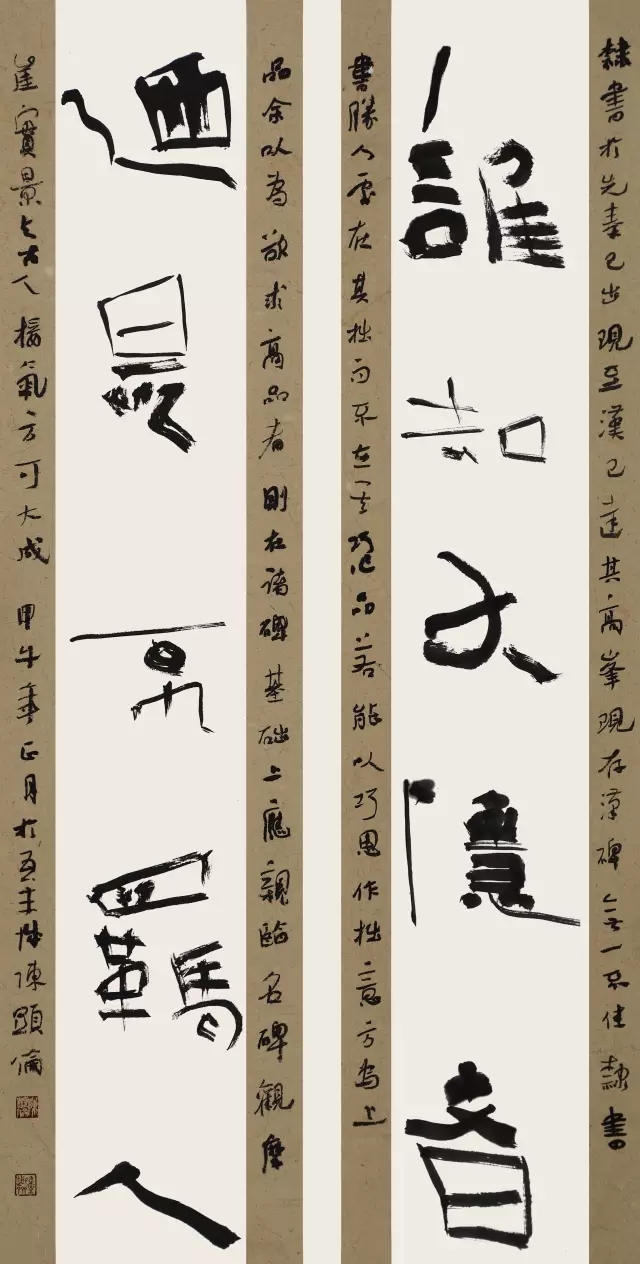 隸書於先秦已出現至漢已達其高峯現存漢碑無一不佳隸書
誰知大隱者
書勝人處在其拙而不在其巧品若能以巧思作拙意方為上
品余以為欲求高品者則在諸碑基础上應親臨名碑觀摩
迺是不羈人
崖實景與古人接氣方可大成 甲午年正月於陳顯倫